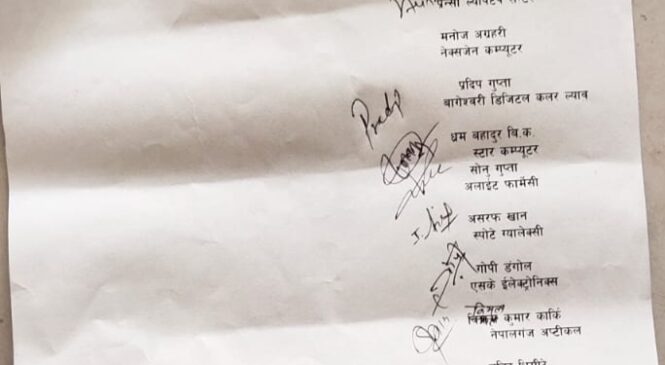 ल्यापटप सेन्टर
मनोज अग्रहरी
नेक्सजेन कम्प्यूटर
प्रदिप गुप्ता
बागेश्वरी डिजिटल कलर ल्याब
ध्रम बहादुर बि.क.
स्टार कम्प्यूटर
सोनु गुप्ता
अलाईट फार्मेसी
असरफ खान
स्पोटे ग्यालेक्सी
गोपी डंगोल
एसके ईलेक्ट्रोनिक्स
विमल
कुमार कार्कि
नेपालगंज अप्टीकल